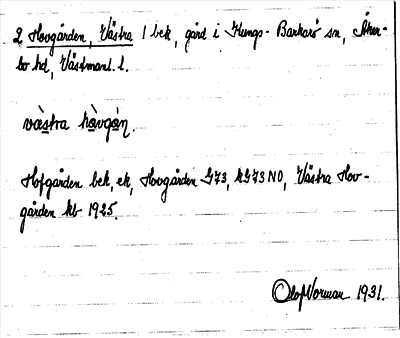 2 Hovgården, Västra 1 bek, gård i Kungs-Barkarö sn, Åker-
bo hd, Västmanl. l.
västra hòvgán.
Hofgården bek, ek, Hovgården G73, KG73NO, Västra Hov-
gården kb 1925.
Olof Norman 1931.